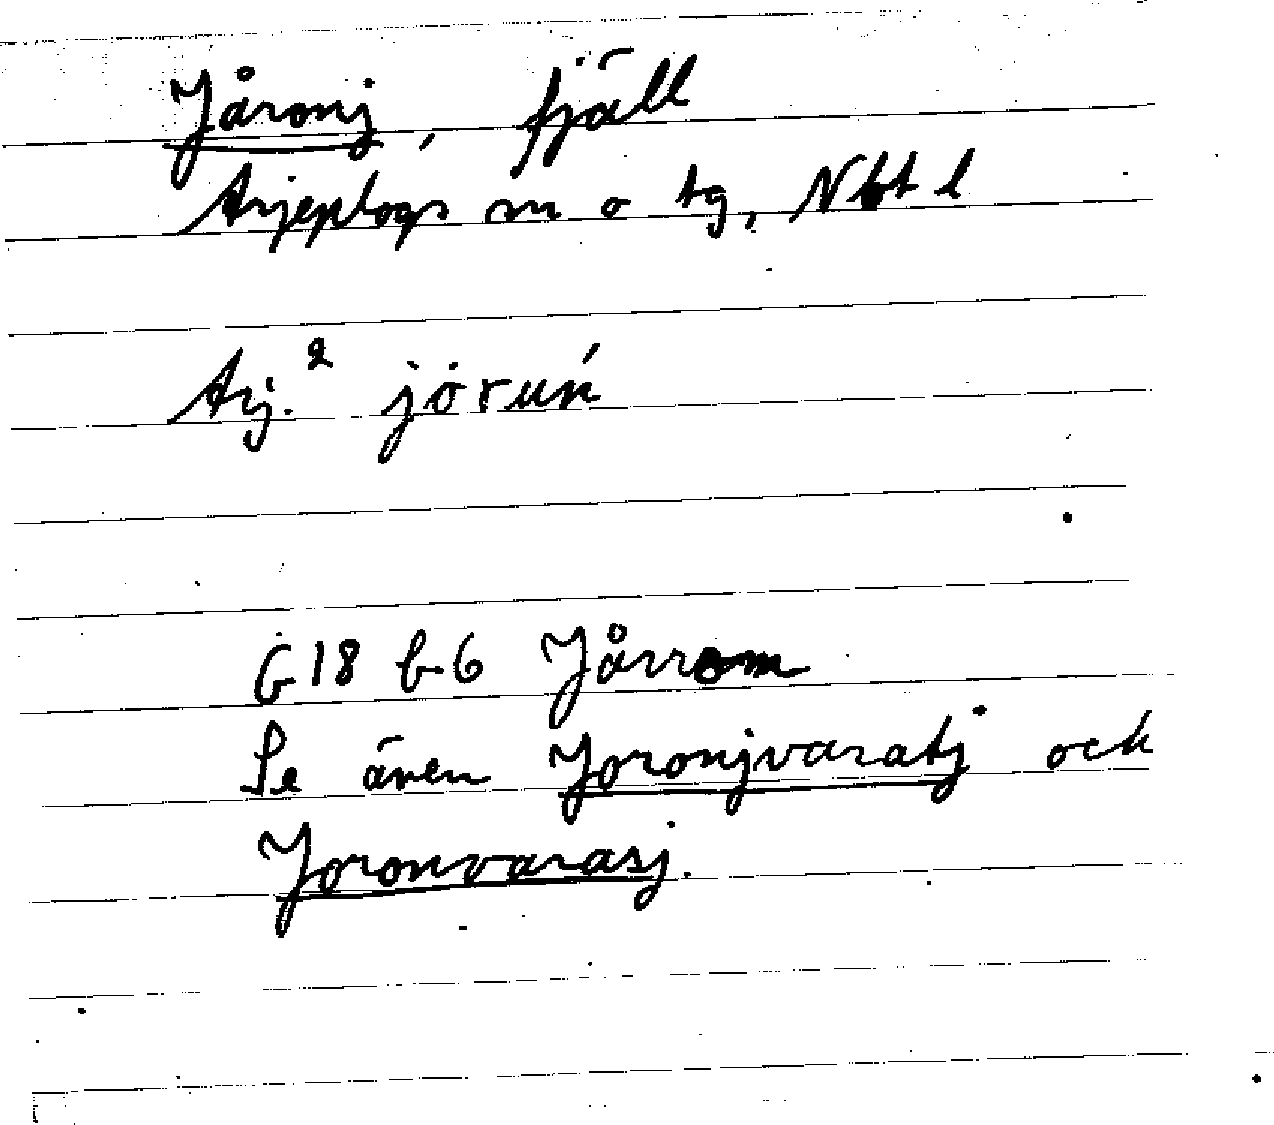 Jåronj, fjäll
Arjeplogs sn o tg, Nbt l
Arj.² jȯ́ruń
G18 b-6 Jårrom
Se även Joronjvaratj och
Joronvarasj.